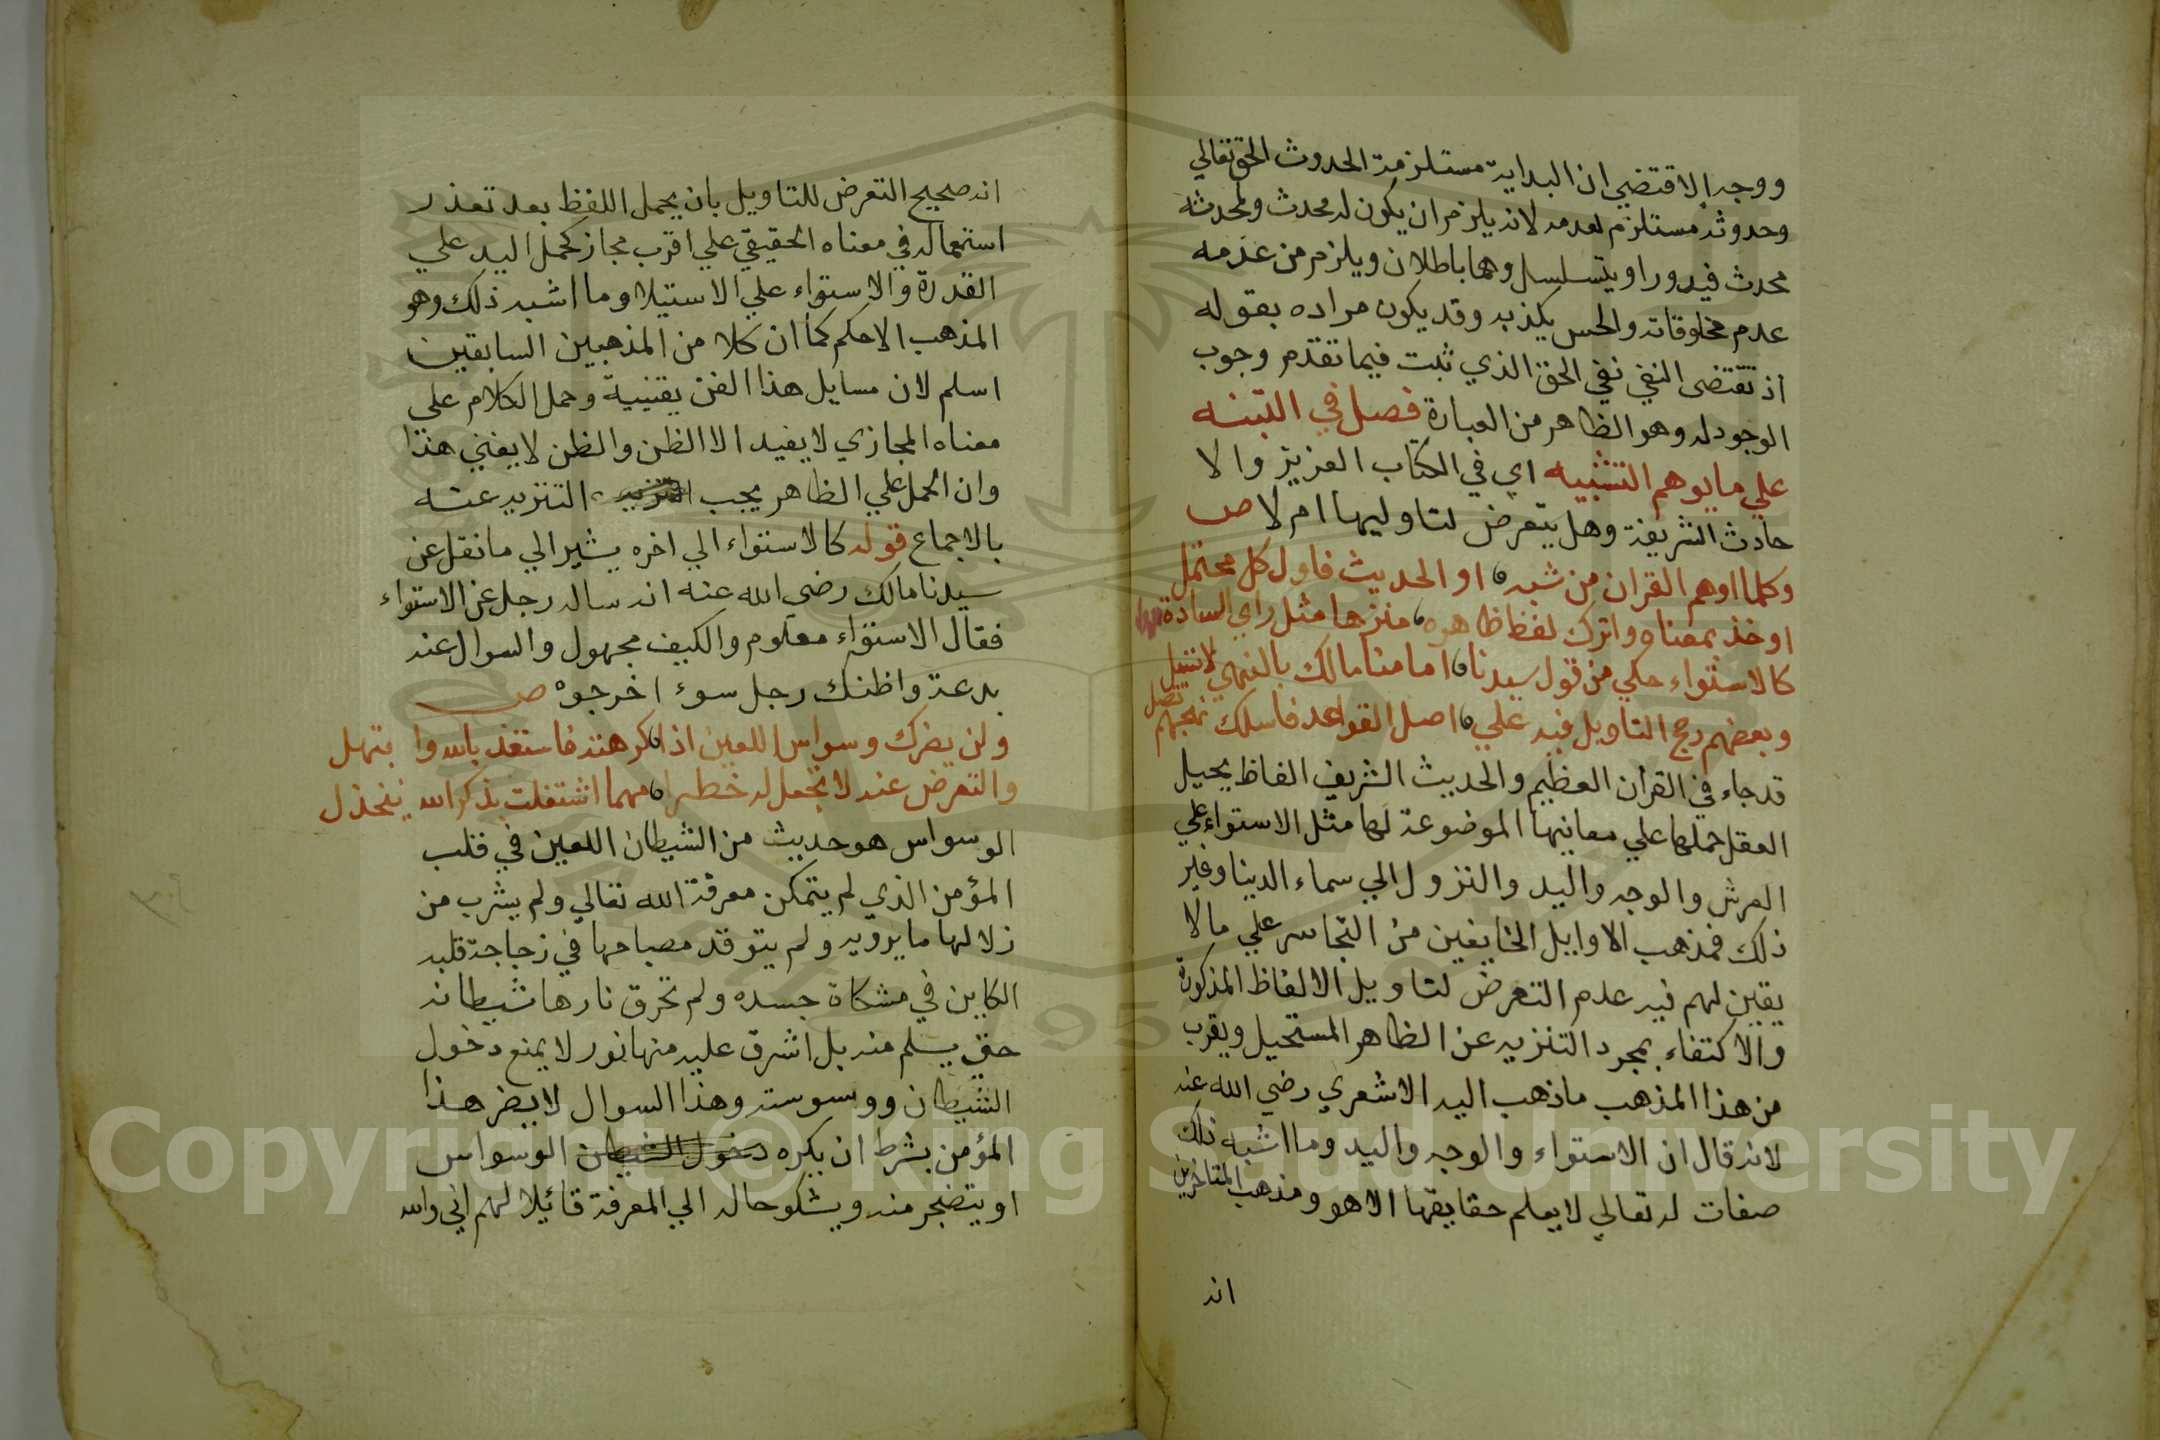 ووجه الاقتضي ان البداية مستلزمة الحدوث الحق تعالي
وحدوثه مستلزم لعدمه لانه يلزم ان يكون له محدث ولمحدثه
محدث فيدور او يتسلسل وهما باطلان ويلزم من عدمه
عدم مخلوقاته والحس يكذبه وقد يكون مراده بقوله
اذ تقتضى النفي نفي الحق الذي ثبت فيما تقدم وجوب
الوجود له وهو الظاهر من العبارة فصل في التبنه
علي ما يوهم التشبيه اي في الكتاب العزيز والا
حادث الشريفة وهل يتعرض لتاويلها ام لا ص
وكلما اوهم القران من شبه او الحديث فاول كل محتمل
او خذ بمعناه واترك لفظ ظاهره منزها مثل راي السادة
كالاستواء حكي من قول سيدنا امامنا مالك بالنهي لا تسل
وبعضهم رجح التاويل فيه علي اصل القواعد فاسلك نهجهم تصل
قد جاء في القرأن العظيم والحديث الشريف الفاظ يحيل
العقل حملها علي معانيها الموضوعة لها مثل الاستواء علي
العرش والوجه واليد والنزول الي سماء الدينا وغير
ذلك فمذهب الاوايل الخايفين من التجاسر علي مالا
يقين لهم فيه عدم التعرض لتاويل الالفاظ المذكورة
والاكتفاء بمجرد التنزيه عن الظاهر المستحيل ويقرب
من هذا المذهب ما ذهب اليه الاشعري رضي الله عنه
لانه قال ان الاستواء والوجه واليد وما اشبه ذلك
صفات له تعالي لا يعلم حقايقها الا هو ومذهب المتاخرين
انه
انه صحيح التعرض للتاويل بان يحمل اللفظ بعد تعذر
استعماله في معناه الحقيقي علي اقرب مجاز كحمل اليد علي
القدرة والاستواء علي الاستيلا وما اشبه ذلك وهو
المذهب الاحكم كما ان كلا من المذهبين السابقين
اسلم لان مسايل هذا الفن يقنيية وحمل الكلام علي
معناه المجازي لا يفيد الا الظن والظن لا يغني هذا
وان الحمل علي الظاهر يجب التنزيه عنه
بالاجماع قوله كالاستواء الي اخره يشير الي ما نقل عن
سيدنا مالك رضي الله عنه انه ساله رجل عن الاستواء
فقال الاستواء معلوم والكيف مجهول والسوال عنه
بدعة واظنك رجل سوء اخرجوه ص
ولن يضرك وسواس اللعين اذا كرهته فاستعذ بالله وابتهل
والتعرض عنه لا تجعل له خطرا مهما اشتغلت بذكر الله ينخذل
الوسواس هو حديث من الشيطان اللعين في قلب
المؤمن الذي لم يتمكن معرفة الله تعالي ولم يشرب من
زلالها ما يرويه ولم يتوقد مصباحها في زجاجة قلبه
الكاين في مشكاة جسده ولم تحرق نارها شيطانه
حتي يسلم منه بل اشرق عليه منها نور لا يمنع دخول
الشيطان ووسوسته وهذا السوال لا يضر هذا
المؤمن بشرط ان يكره دخول الشيطان الوسواس
او يتضجر منه ويشكو حاله الي المعرفة قائيلا لهم اني والله
Copyright © King Saud University